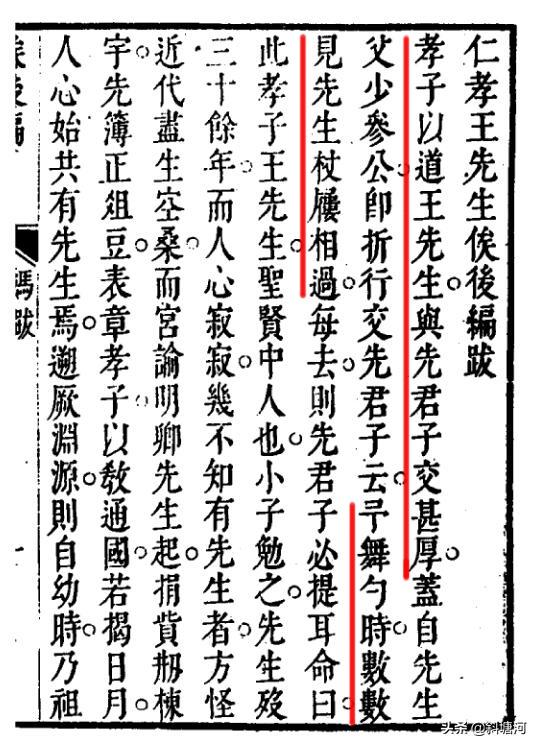 仁孝王先生俟後編跋
孝子以道王先生與先君子交甚厚蓋自先生
父少參公卽折行交先君子云予舞勺時數數
見先生杖屨相過每去則先君子必提耳命曰
此孝子王先生聖賢中人也小子勉之先生歿
三十餘年而人心寂寂幾不知有先生者方怪
近代盡生空桑而宮諭明卿先生起捐貲剏棟
宇先簿正俎豆表章孝子以敎通國若揭日月
人心始共有先生焉遡厥淵源則自幼時乃祖
俟後編
馮跋
一
头条@斜塘河